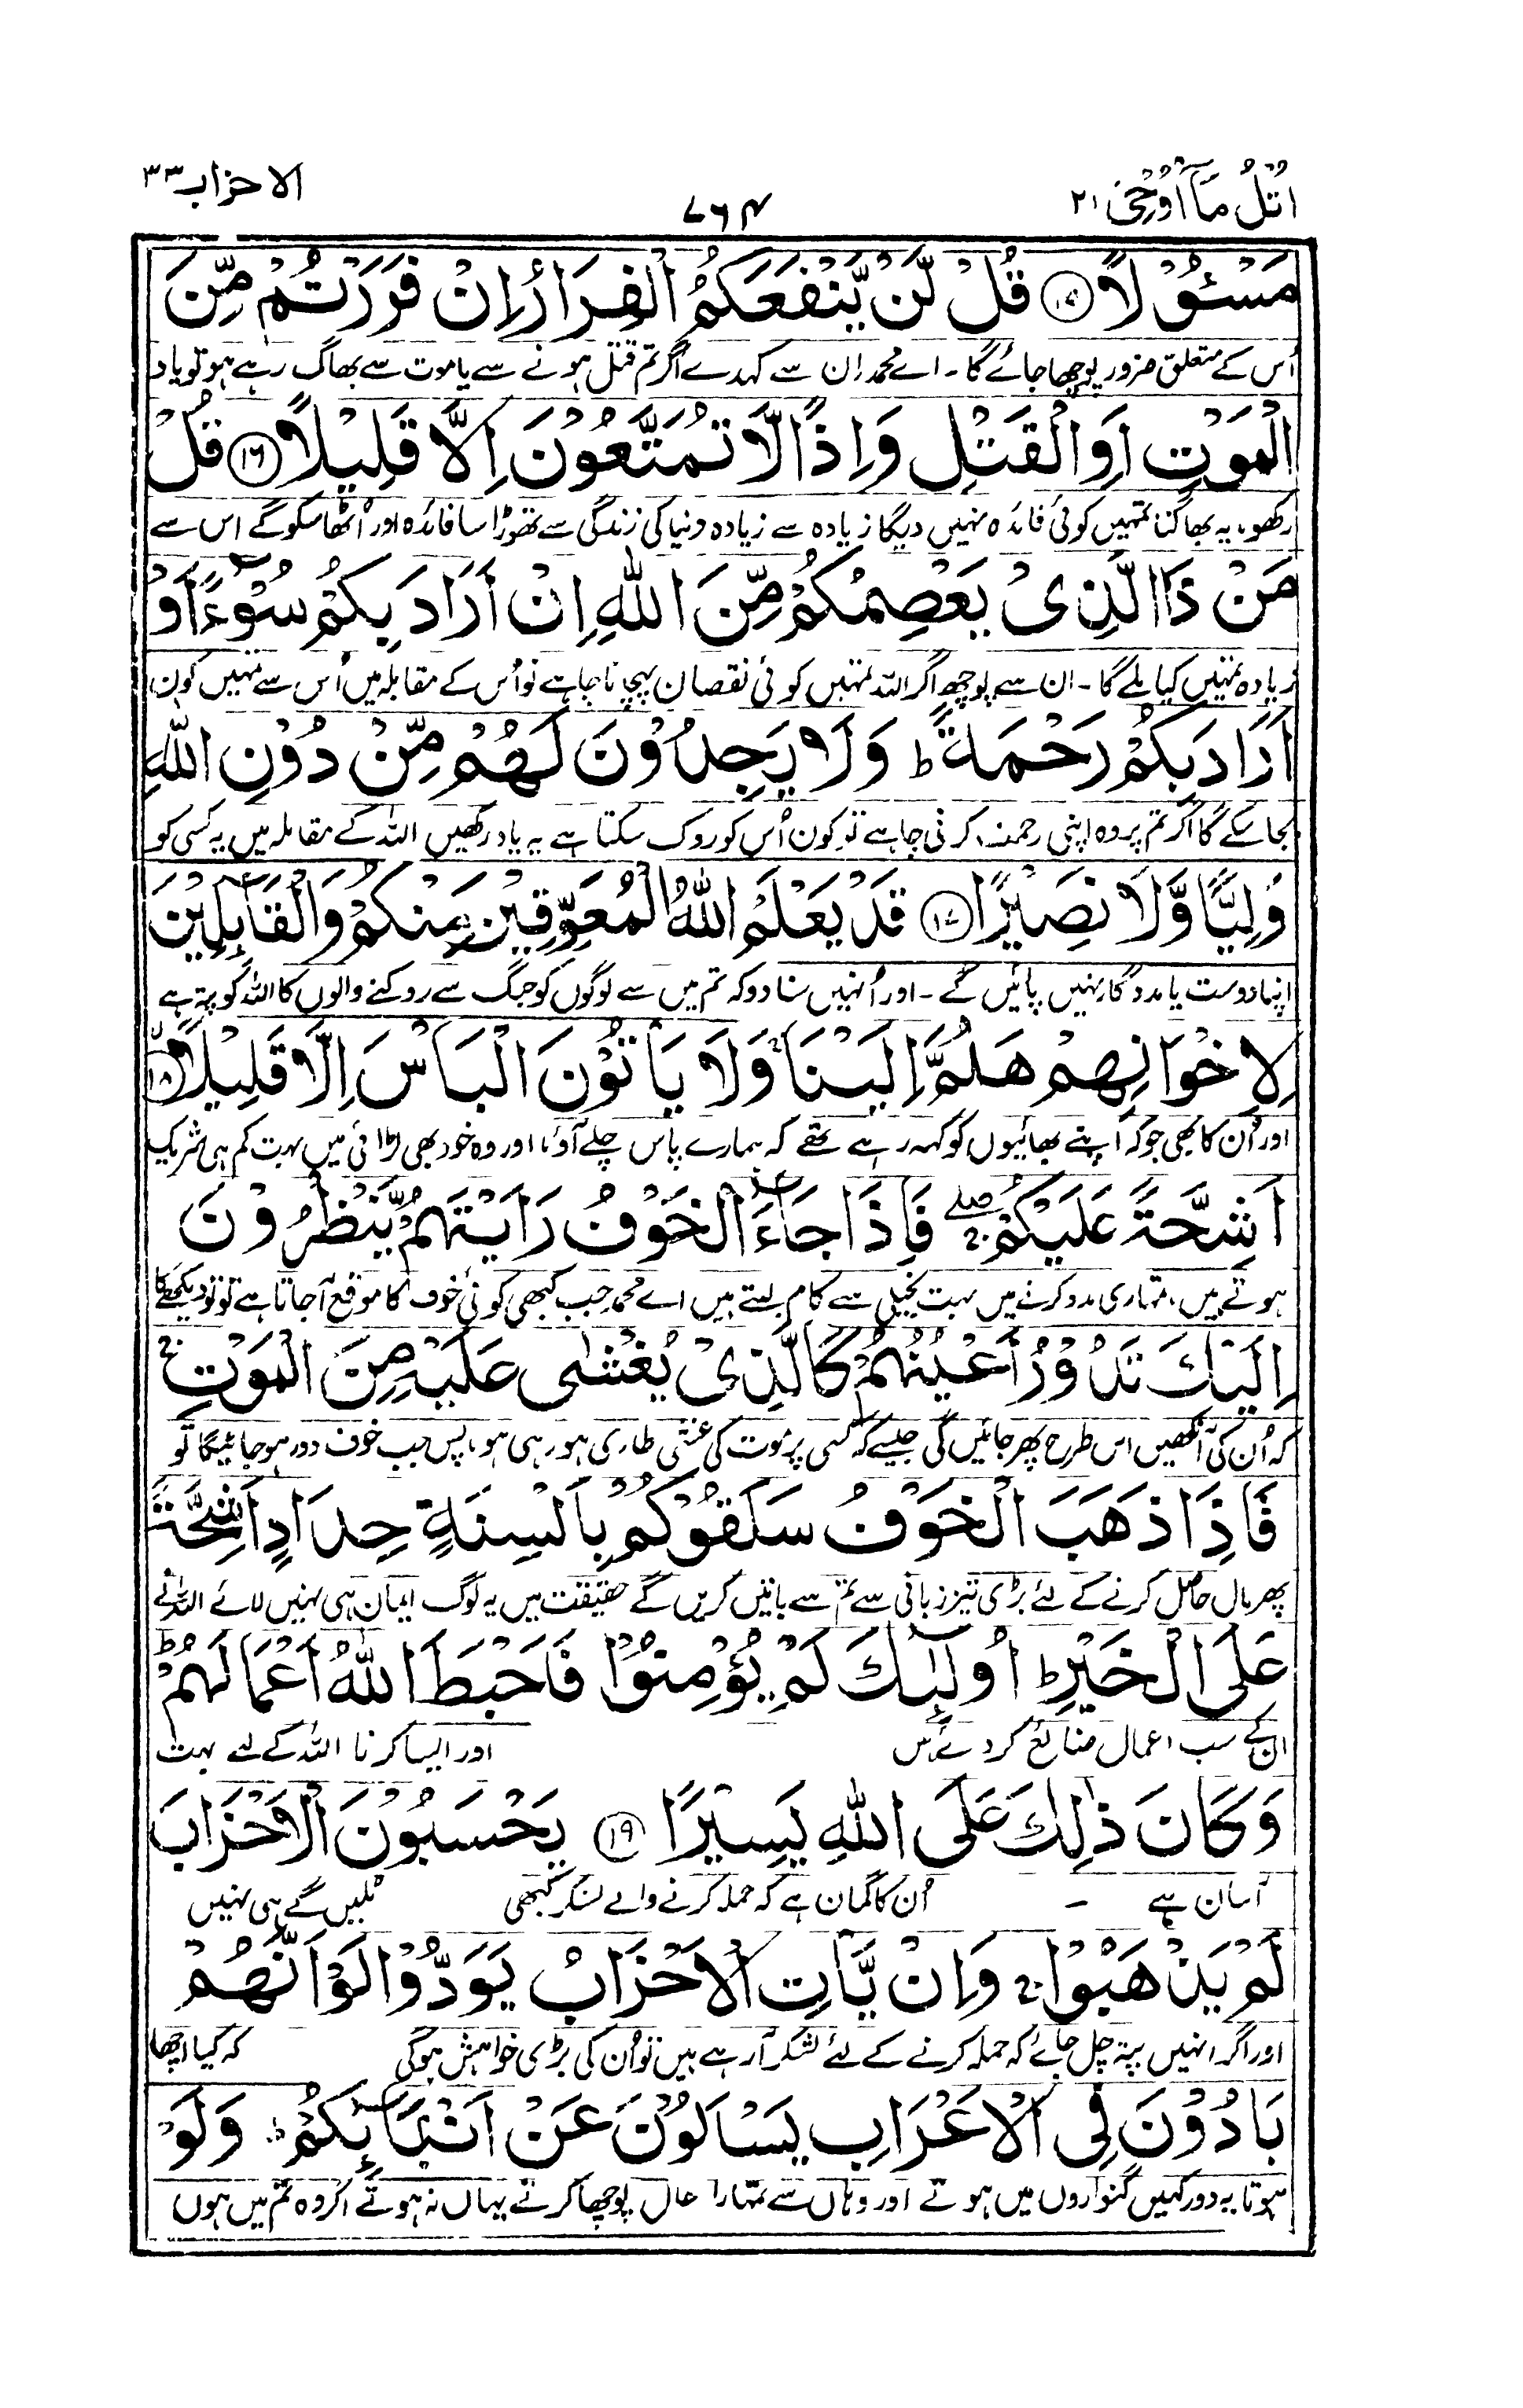 اُتْلُ مَآ اُوْحِیَ ۲۱
۷۶۴
الاحزاب ۳۳
مَسْئُوْلًا ۝۱۵ قُلْ لَّنْ يَّنْفَعَكُمُ الْفِرَارُ اِنْ فَرَرْتُمْ مِّنَ
اُس کے متعلق ضرور پوچھا جائے گا۔ اے محمد ان سے کہدے اگر تم قتل ہونے سے یا موت سے بھاگ رہے ہو تو یاد
الْمَوْتِ اَوِ الْقَتْلِ وَاِذًا لَّا تُمَتَّعُوْنَ اِلَّا قَلِيْلًا ۝۱۶ قُلْ
رکھو، یہ بھاگنا تمہیں کوئی فائدہ نہیں دیگا زیادہ سے زیادہ دنیا کی زندگی سے تھوڑا سا فائدہ اور اُٹھا سکو گے اس سے
مَنْ ذَا الَّذِىْ يَعْصِمُكُمْ مِّنَ اللّٰهِ اِنْ اَرَادَ بِكُمْ سُوْٓءًا اَوْ
زیادہ تمہیں کیا ملے گا۔ ان سے پوچھ اگر اللہ تمہیں کوئی نقصان پہچانا چاہے تو اُس کے مقابلہ میں اُس سے تمہیں کون
اَرَادَ بِكُمْ رَحْمَةً ؕ وَلَا يَجِدُوْنَ لَهُمْ مِّنْ دُوْنِ اللّٰهِ
بچا سکے گا اگر تم پر وہ اپنی رحمت کرنی چاہے تو کون اُس کو روک سکتا ہے یہ یاد رکھیں اللہ کے مقابلہ میں یہ کسی کو
وَلِيًّا وَّلَا نَصِيْرًا ۝۱۷ قَدْ يَعْلَمُ اللّٰهُ الْمُعَوِّقِيْنَ مِنْكُمْ وَالْقَآئِلِيْنَ
اپنا دوست یا مددگار نہیں پائیں گے۔ اور اُنہیں سنا دو کہ تم میں سے لوگوں کو جنگ سے روکنے والوں کا اللہ کو پتہ ہے
لِاِخْوَانِهِمْ هَلُمَّ اِلَيْنَا ۚ وَلَا يَاْتُوْنَ الْبَاْسَ اِلَّا قَلِيْلًا ۝۱۸
اور اُن کا بھی جو کہ اپنے بھائیوں کو کہہ رہے تھے کہ ہمارے پاس چلے آؤ، اور وہ خود بھی لڑائی میں بہت کم ہی شریک
اَشِحَّةً عَلَيْكُمْ ۚۖ فَاِذَا جَآءَ الْخَوْفُ رَاَيْتَهُمْ يَنْظُرُوْنَ
ہوتے ہیں، تمہاری مدد کرنے میں بہت بخیلی سے کام لیتے ہیں اے محمد جب کبھی کوئی خوف کا موقع آجاتا ہے تو تو دیکھے گا
اِلَيْكَ تَدُوْرُ اَعْيُنُهُمْ كَالَّذِىْ يُغْشٰى عَلَيْهِ مِنَ الْمَوْتِ ۚ
کہ اُن کی آنکھیں اس طرح پھر جائیں گی جیسے کہ کسی پر موت کی غشی طاری ہو رہی ہو، پس جب خوف دور ہو جائیگا تو
فَاِذَا ذَهَبَ الْخَوْفُ سَلَقُوْكُمْ بِاَلْسِنَةٍ حِدَادٍ اَشِحَّةً
پھر مال حاصل کرنے کے لئے بڑی تیز زبانی سے تم سے باتیں کریں گے حقیقت میں یہ لوگ ایمان ہی نہیں لائے اللہ نے
عَلَى الْخَيْرِ ؕ اُولٰٓئِكَ لَمْ يُؤْمِنُوْا فَاَحْبَطَ اللّٰهُ اَعْمَالَهُمْ ؕ
ان کے سب اعمال ضائع کر دئے ہیں اور ایسا کرنا اللہ کے لئے بہت
وَكَانَ ذٰلِكَ عَلَى اللّٰهِ يَسِيْرًا ۝۱۹ يَحْسَبُوْنَ الْاَحْزَابَ
آسان ہے ۔ اُن کا گمان ہے کہ حملہ کرنے والے لشکر کبھی ٹلیں گے ہی نہیں
لَمْ يَذْهَبُوْا ۚ وَاِنْ يَّاْتِ الْاَحْزَابُ يَوَدُّوْا لَوْ اَنَّهُمْ
اور اگر انہیں پتہ چل جائے کہ حملہ کرنے کے لئے لشکر آ رہے ہیں تو اُن کی بڑی خواہش ہو گی کہ کیا اچھا
بَادُوْنَ فِى الْاَعْرَابِ يَسْاَلُوْنَ عَنْ اَنْۢبَآئِكُمْ ؕ وَلَوْ
ہوتا یہ دور کہیں گنواروں میں ہوتے اور وہاں سے تمہارا حال پوچھا کرتے یہاں نہ ہوتے اگر وہ تم میں ہوں